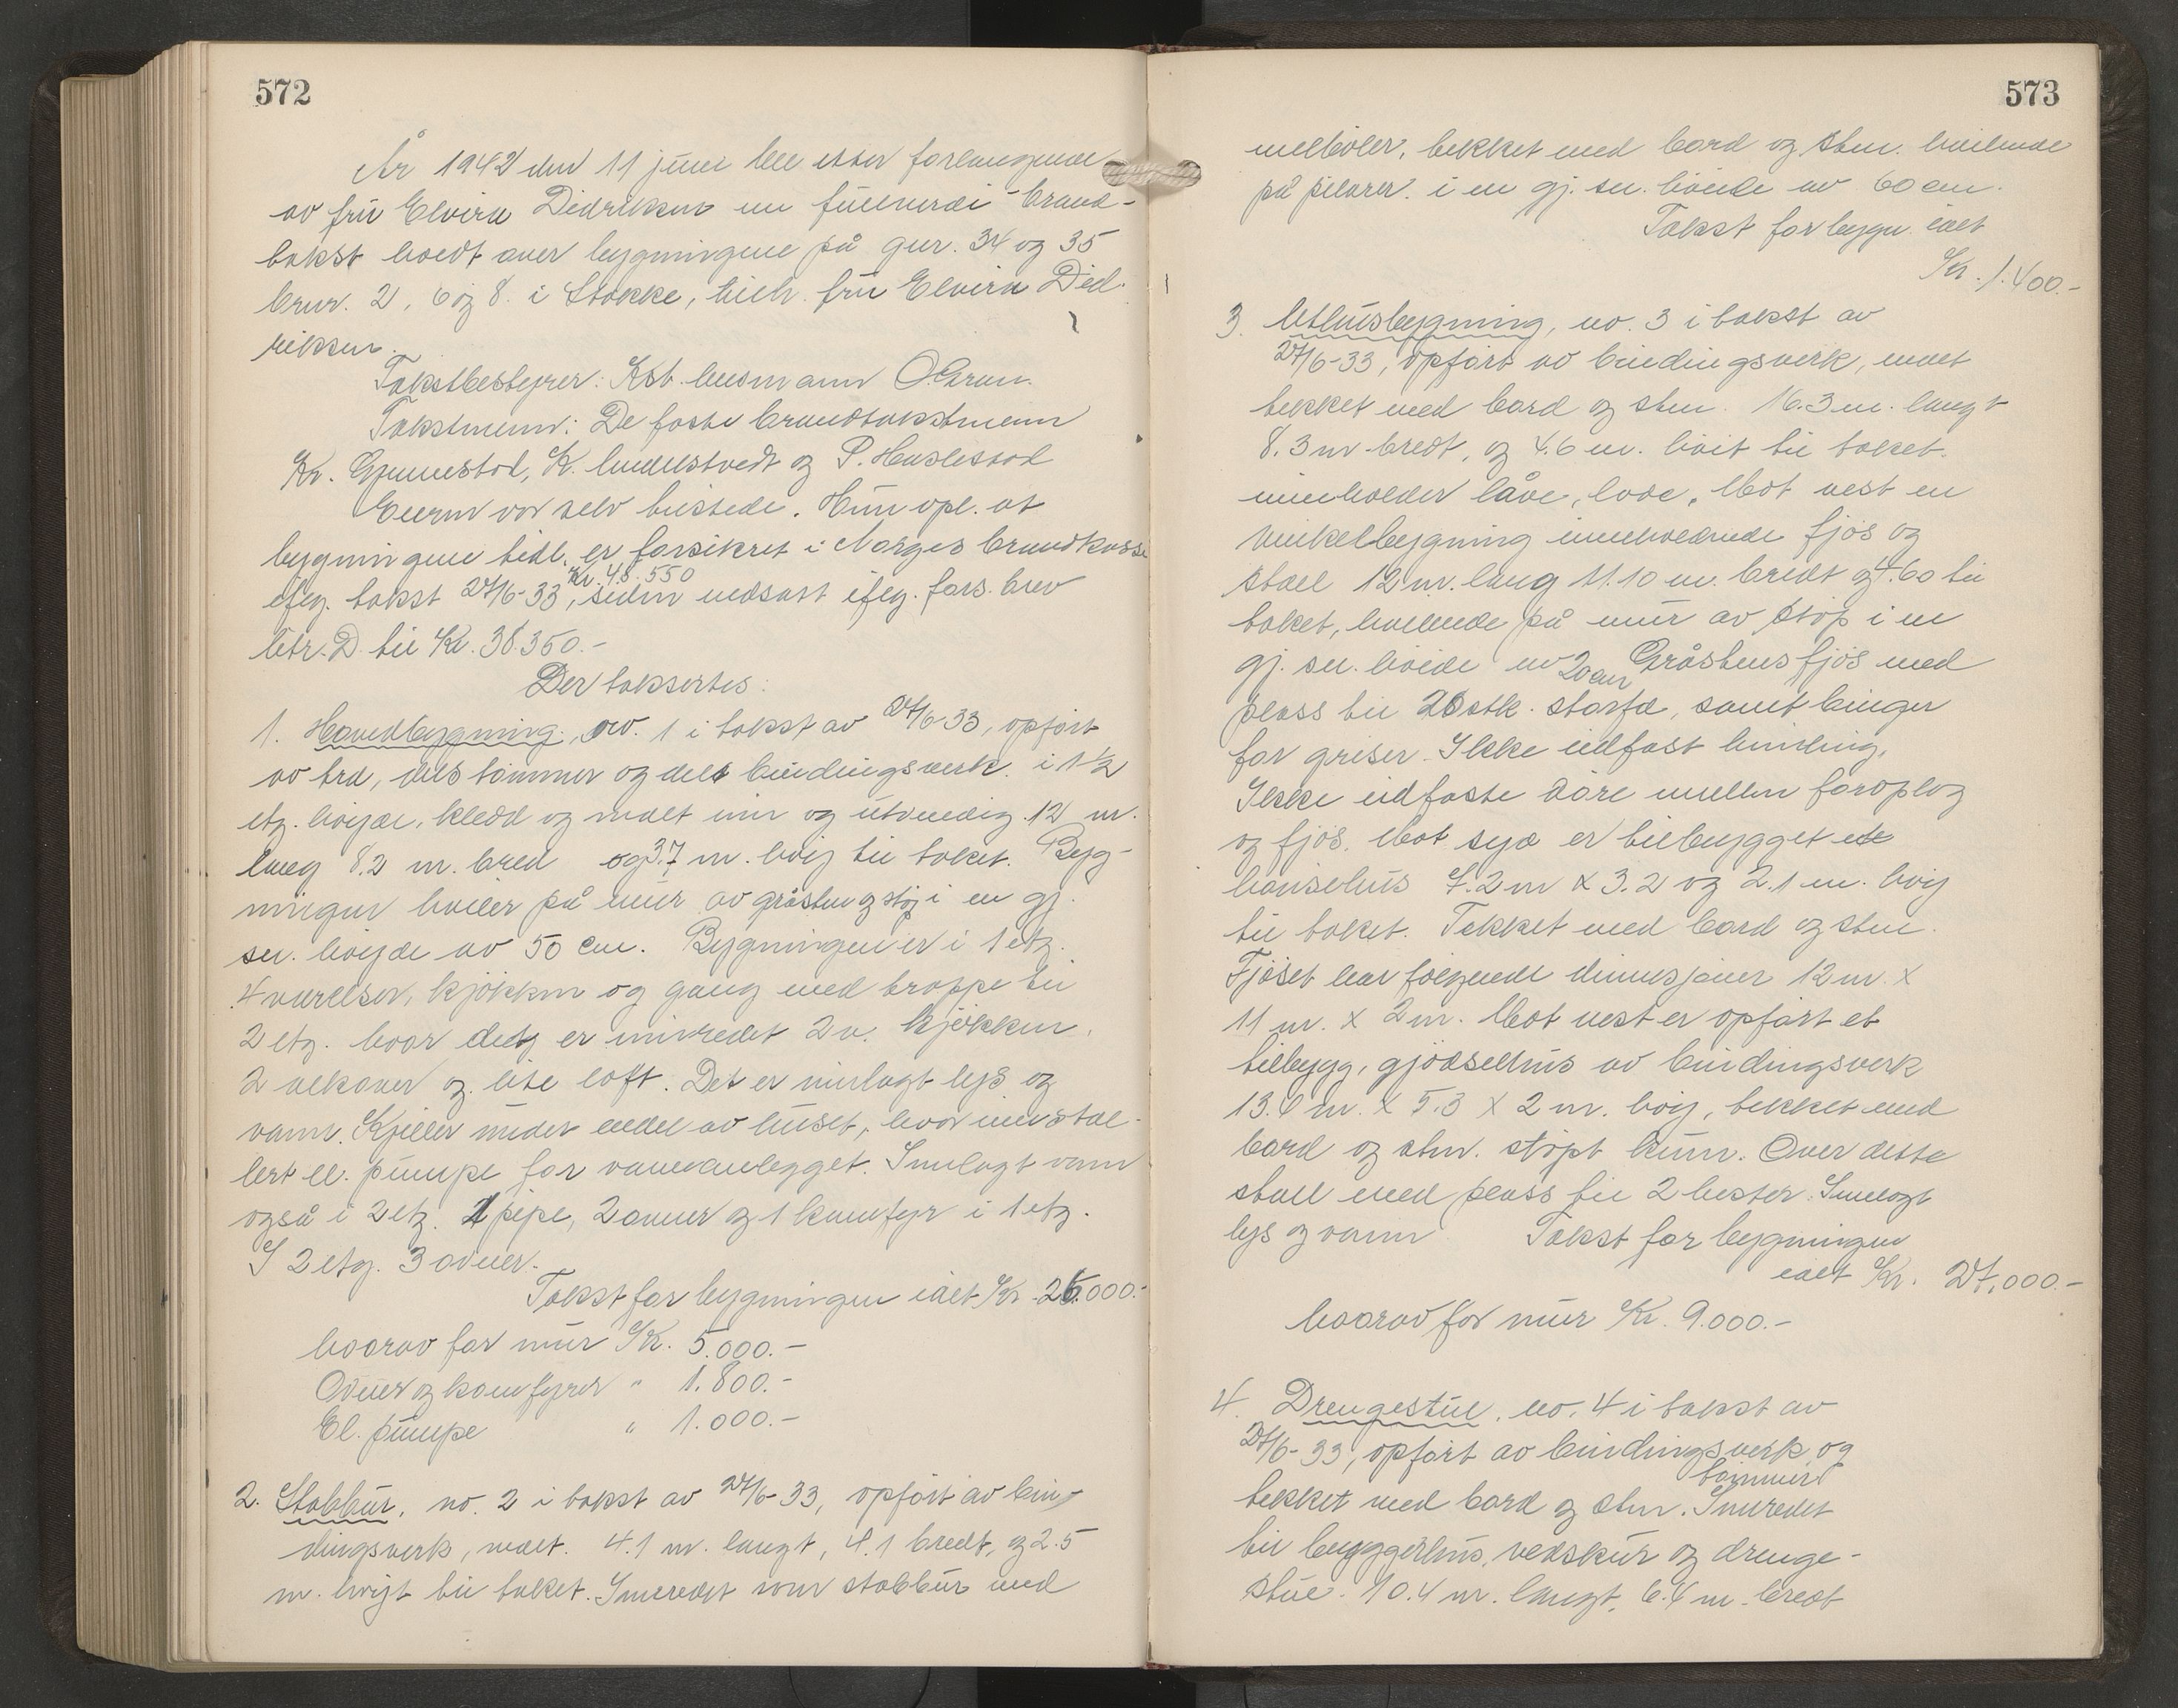 572
År 1942 den 11 juni ble efter forlangende
av frü Elvira Didriksen en fullverdi-brand-
takst holdt over bygningene på gnr. 34 og 35
brnr. 2, 6 og 8. i Stokke, tilh. frü Elvira Did-
riksen.
Takstbestyrer: Kst. lensmann O. Gran.
Takstmenn: De faste brandtakstmenn
Kr. Gjennestad, K. Lindelstvedt og P. Haslestad
Eieren var selv tilstede. Hün opl. at
bygningene tidl. er forsikret i Norges brandkasse
Kr. 48.550
iflg. takst 27/6-33, siden nedsatt iflg. fors. brev
litr. D. til Kr. 38.350.-
Der takseres:
1. Hovedbygning, no. 1 i takst av 27/6-33, opført
av tre, dels tømmer og dels bindingsverk i 1½
etg. høyde, kledd og malt inn og ütvendig. 12 m.
lang 8.2 m. bred og 3.7 m. høy til taket. Byg-
ningen hviler på mür av gråsten og støp i en gj.
sn. høyde av 50 cm. Bygningen er i 1 etg.
4 værelser, kjøkken og gang med trappe til
2 etg. hvor det er innredet 2 v. kjøkken,
2 alkover og lite loft. Det er innlagt lys og
vann. Kjeller ünder endel av hüset, hvor instal-
lert el. pümpe for vannanlegget. Innlagt vann
også i 2 etg. 1 pipe, 2 ovner og 1 komfyr i 1 etg.
I 2 etg. 3 ovner.
Takst for bygningen ialt Kr. 26.000.-
hvorav for mür Kr. 5.000.-
Ovner og komfyrer " 1.800.-
El. pümpe " 1.000.-
2. Stabbür, no. 2 i takst av 27/6-33, opført av bin-
dingsverk, malt. 4.1 m. langt, 4.1 bredt, og 2.5
m. høyt til taket. Innredet som stabbür med
573
melbøler, tekket med bord og sten. hvilende
på pilarer. i en gj. sn. høide av 60 cm.
Takst for bygn. ialt
Kr. 1.400.-
3. Uthüsbygning, no. 3 i takst av
27/6-33, opført av bindingsverk, malt
tekket med bord og sten. 16.3 m. langt
8.3 m bredt, og 4.6 m. høit til taket.
inneholder låve, loe. Mot vest en
vinkelbygning inneholdende fjøs og
stall 12 m. lang 11.10 m. bredt og 4.60 til
taket, hvilende på mür av støp i en
gj. sn. høide av 20 cm Gråstens fjøs med
plass til 20 stk. storfe, samt binger
for griser. Ikke ildfast binding.
Ikke ildfaste døre mellem foroplag
og fjøs. Mot syd er tilbygget et
hønsehüs 7.2 m x 3.2 og 2.1 m. høy
til taket. Tekket med bord og sten.
Fjøset har følgende dimensjoner 12 m. x
11 m. x 2 m. Mot vest er opført et
tilbygg, gjødselhüs av bindingsverk
13.6 m. x 5.3 x 2 m. høy, tekket med
bord og sten. støpt küm. Over dette
stall med plass til 2 hester. Innlagt
lys og vann Takst for bygningen
ialt Kr. 27.000.-
hvorav for mür Kr. 9.000.-
4. Drengestüe, no. 4 i takst av
27/6-33, opført av bindingsverk og
tømmer
tekket med bord og sten. Innredet
til bryggerhüs, vedskür og drenge-
stüe. 10.4 m. langt, 6.4 m. bredt